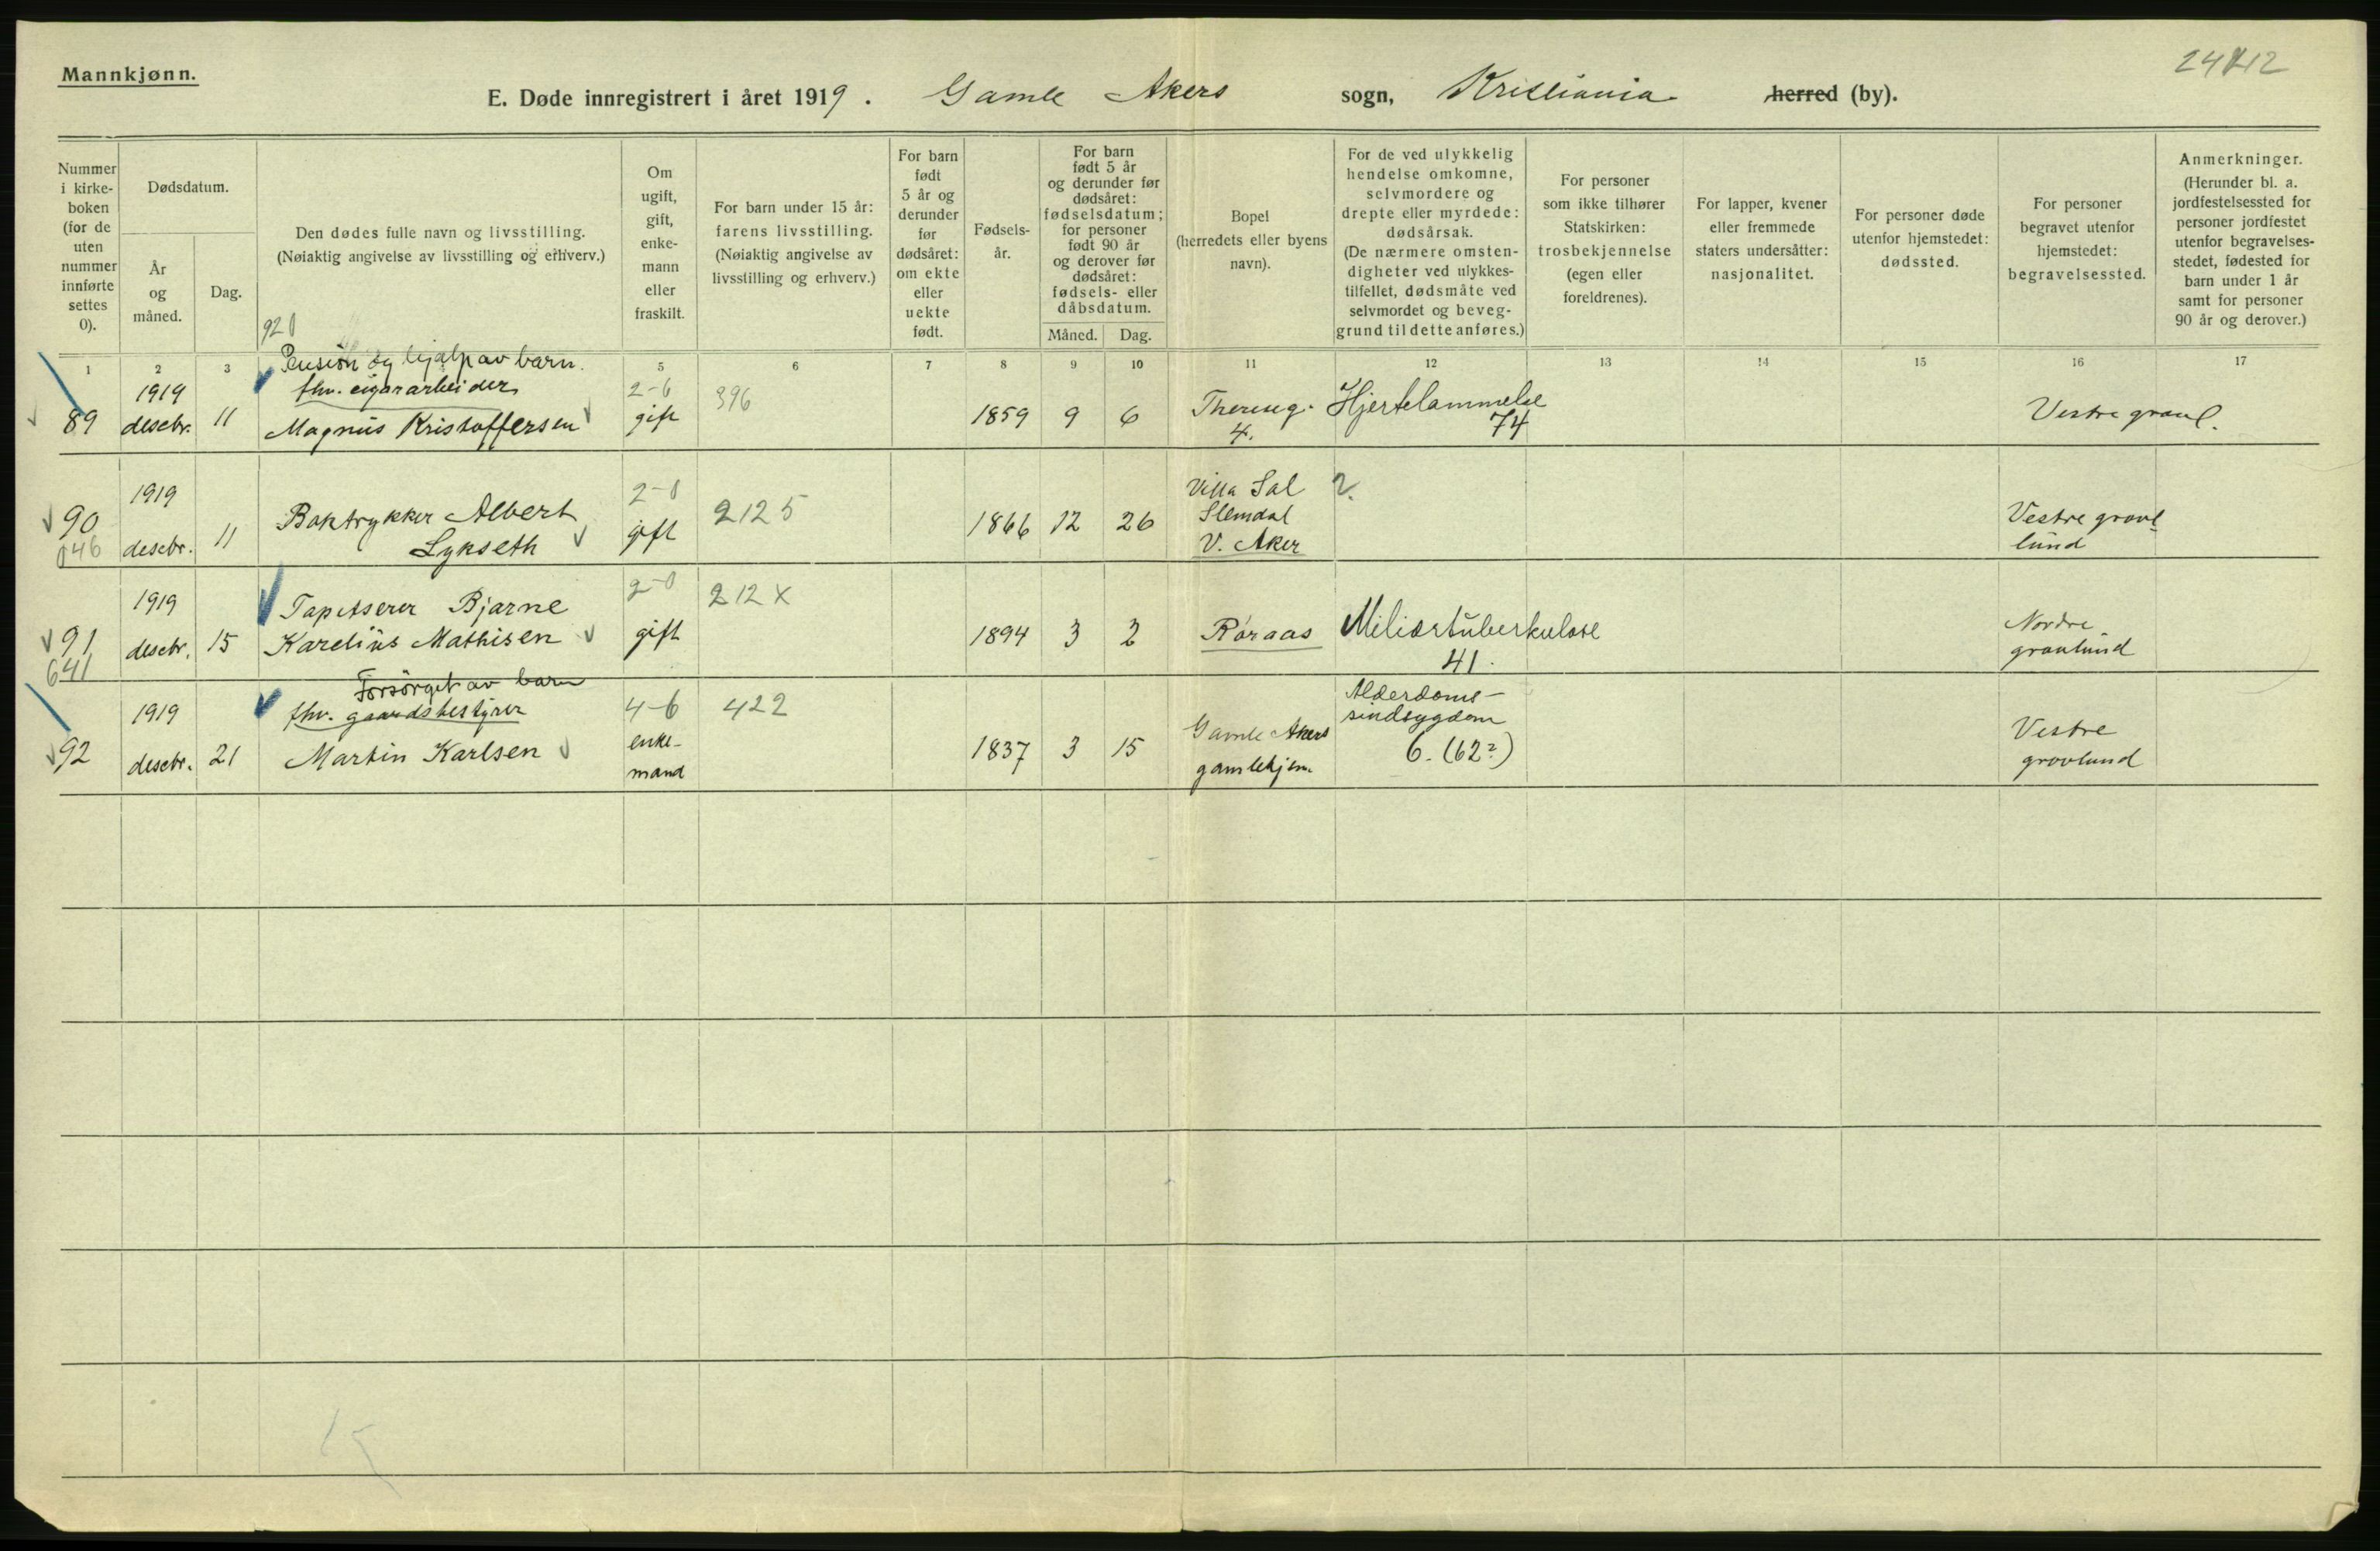 Mannkjønn.
E. Døde innregistrert i året 1919. Gamle Akers sogn, Kristiania herred (by).
Nummer i kirke-boken (for de uten nummer innførte settes 0).
Dødsdatum.
År og måned.
Dag.
Den dødes fulle navn og livsstilling.
(Nøiaktig angivelse av livsstilling og erhverv.)
Om ugift, gift, enke-mann eller fraskilt.
For barn under 15 år: farens livsstilling.
(Nøiaktig angivelse av livsstilling og erhverv.)
For barn født 5 år og derunder før dødsåret: om ekte eller uekte født.
Fødsels-år.
For barn født 5 år og derunder før dødsåret: fødselsdatum; for personer født 90 år og derover før dødsåret: fødsels- eller dåbsdatum.
Måned. Dag.
Bopel (herredets eller byens navn).
For de ved ulykkelig hendelse omkomne, selvmordere og drepte eller myrdede: dødsårsak.
(De nærmere omsten-digheter ved ulykkes-tilfellet, dødsmåte ved selvmordet og beveg-grund til dette anføres.)
For personer som ikke tilhører Statskirken: trosbekjennelse (egen eller foreldrenes).
For lapper, kvener eller fremmede staters undersåtter: nasjonalitet.
For personer døde utenfor hjemstedet: dødssted.
For personer begravet utenfor hjemstedet: begravelsessted.
Anmerkninger.
(Herunder bl. a. jordfestelsessted for personer jordfestet utenfor begravelses-stedet, fødested for barn under 1 år samt for personer 90 år og derover.)
920
1 2 3 5 6 7 8 9 10 11 12 13 14 15 16 17
Pension og hjælp av barn.
1919 fhv. cigararbeider 2-6 396
89 desebr. 11 Magnus Kristoffersen gift 1859 9 6 Thereseg. 4. Hjertelammelse 74 Vestre gravl.
1919 2-0 2125 Villa Sol ?.
90 desebr. 11 Boktrykker Albert Lykseth gift 1866 12 26 Slemdal V. Aker Vestre grav-lund
046
1919 Tapetserer Bjarne 2-0 212 X
91 desebr. 15 Karelius Mathisen gift 1894 3 2 Røraas Miliærtuberkulose 41. Nordre gravlund
641
Forsørget av barn
1919 fhv. gaardsbestyrer 4-6 422 Alderdoms-sindsygdom
92 desebr. 21 Martin Karlsen enke-mand 1837 3 15 Gamle Akers gamlehjem. 6. (62?) Vestre gravlund
15